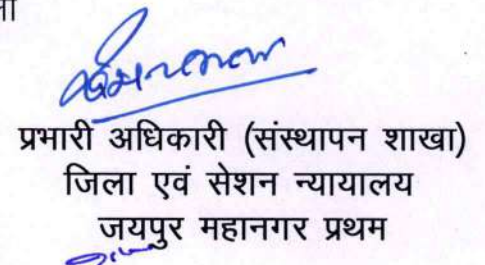 प्रभारी अधिकारी (संस्थापन शाखा)
जिला एवं सेशन न्यायालय
जयपुर महानगर प्रथम